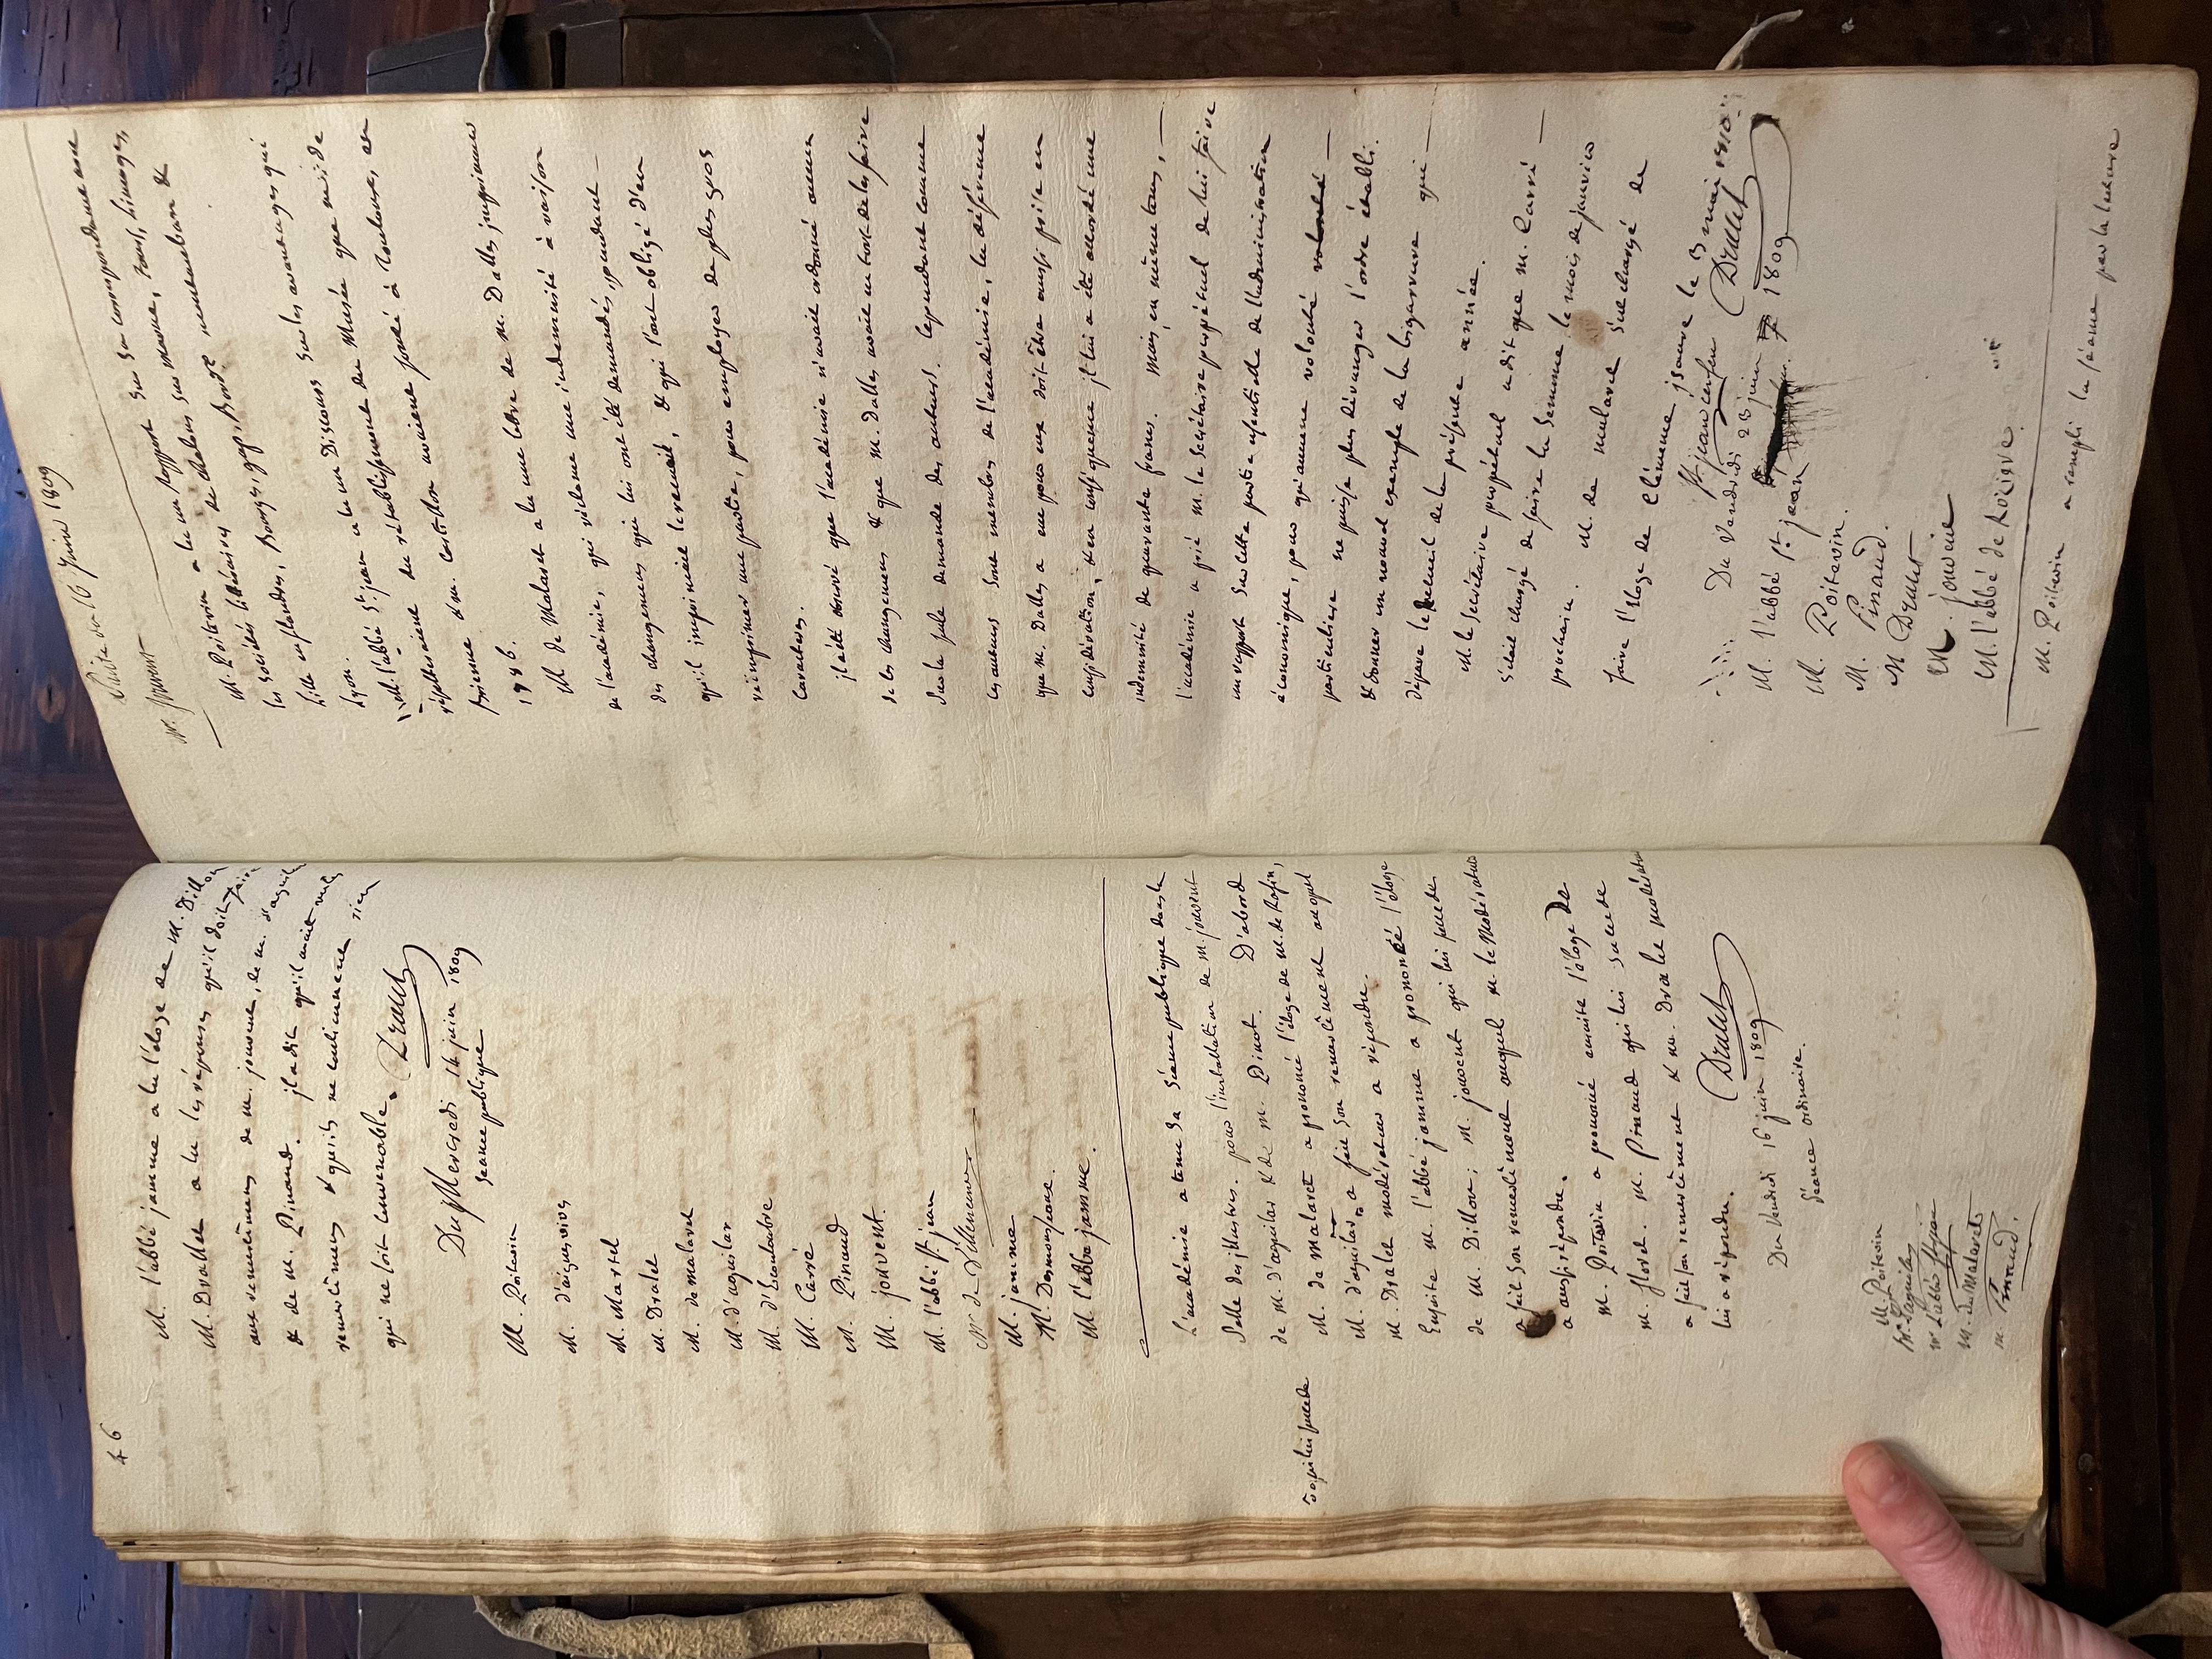 46
M. l'abbé jamme a lu l'éloge de M. Dillon
M. Dralet a lu les réponses qu'il doit faire
aux remercîmens de M. jouvent, de M. d'aguilar
& de M. Pinaud. il a dit qu'il avait vu les
remercîmens & qu'ils ne contiennent rien
qui ne soit convenable. Dralet
Du Mercredi 14 juin 1809
Séance publique
M. Poitevin
M. d'aiguesvives
M. Martel
M. Dralet
M. de malaret
M. d'aguilar
M. d'Escouloubre
M. Carré
M. Pinaud
M. jouvent.
M. l'abbé St. jean
Mr de Villeneuve
M. jamme
M. Desmousseaux.
M. l'abbé jamme.
L'académie a tenu sa séance publique dans la
Salle des illustres. pour l'installation de M. jouvent
de M. d'aguilar & de M. Pinaud. D'abord
M. de malaret a prononcé l'éloge de M. de Rafin,
à qui lui succède
M. d'aguilar a fait son remercîment auquel
M. Dralet modérateur a répondu.
Ensuite M. l'abbé jamme a prononcé l'éloge
de M. Dillon; M. jouvent qui lui succède
a fait son remercîment auquel M. le Modérateur
a aussi répondu.
M. Poitevin a prononcé ensuite l'éloge de
M. floret. M. Pinaud qui lui succède
a fait son remercîment & M. Dralet modérateur
lui a répondu. Dralet
Du Vendredi 16 juin 1809
Séance ordinaire.
M. Poitevin
Mr d'aguilar
Mr l'abbé St jean
M. de Malaret
M. Pinaud.
Suite du 16 Juin 1809
M. jouvent
M. Poitevin a lu un rapport sur sa correspondance avec
les Sociétés littéraires de chalons sur marne, Tours, Limoges,
Lille en flandres, Bourg, gap, Bordx, montauban &
Lyon.
M. l'abbé St. jean a lu un Discours sur les avantages qui
résulteraient du rétablissement du Musée que MM. de
Brienne & M. Castillon avaient fondé à Toulouse, en
1786.
M. de Malaret a lu une lettre de M. Dalles imprimeur
de l'académie, qui réclame une indemnité à raison
des changemens qui lui ont été demandés, pendant —
qu'il imprimait le recueil, & qui l'ont obligé d'en
réimprimer une partie, pour employer de plus gros
Caractères.
il a été observé que l'académie n'avait ordonné aucun
de ces changemens & que M. Dalles avait eu tort de les faire
sur la seule demande des auteurs. Cependant comme
ces auteurs sont membres de l'académie, la déférence
que M. Dalles a eue pour eux doit être aussi prise en
considération, & en conséquence il lui a été accordé une
indemnité de quarante francs. Mais, en même tems, —
l'académie a prié M. le Secrétaire perpétuel de lui faire
un rapport sur cette partie essentielle de l'administration
économique, pour qu'aucune volonté —
particulière ne puisse plus déranger l'ordre établi.
& donner un nouvel exemple de la bigarrure qui —
dépare le recueil de la présente année.
M. le Secrétaire perpétuel a dit que M. Carré —
s'était chargé de faire la Semonce, le mois de janvier
prochain. M. de malaret s'est chargé de
faire l'éloge de Clémence isaure le 3 mai 1810.
Dralet
Du Vendredi 23 juin 1809
M. l'abbé St. jean
M. Poitevin.
M. Pinaud.
M Dralet
M. jamme
M. l'abbé de Rozières.
M. Poitevin a rempli la séance par la lecture